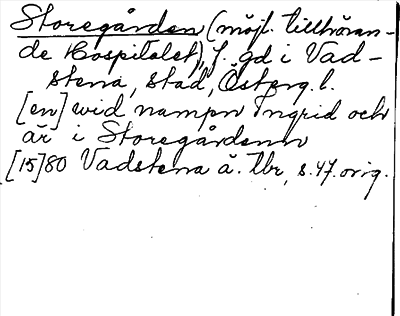 Storegården (möjl. tillhöran-
de Hospitalet), f. gd i Vad-
stena, stad, Österg. l.
[en] wid nampn Ingrid och
är i Storegårdenn
[15]80 Vadstena ä. tbr, s. 47. orig.